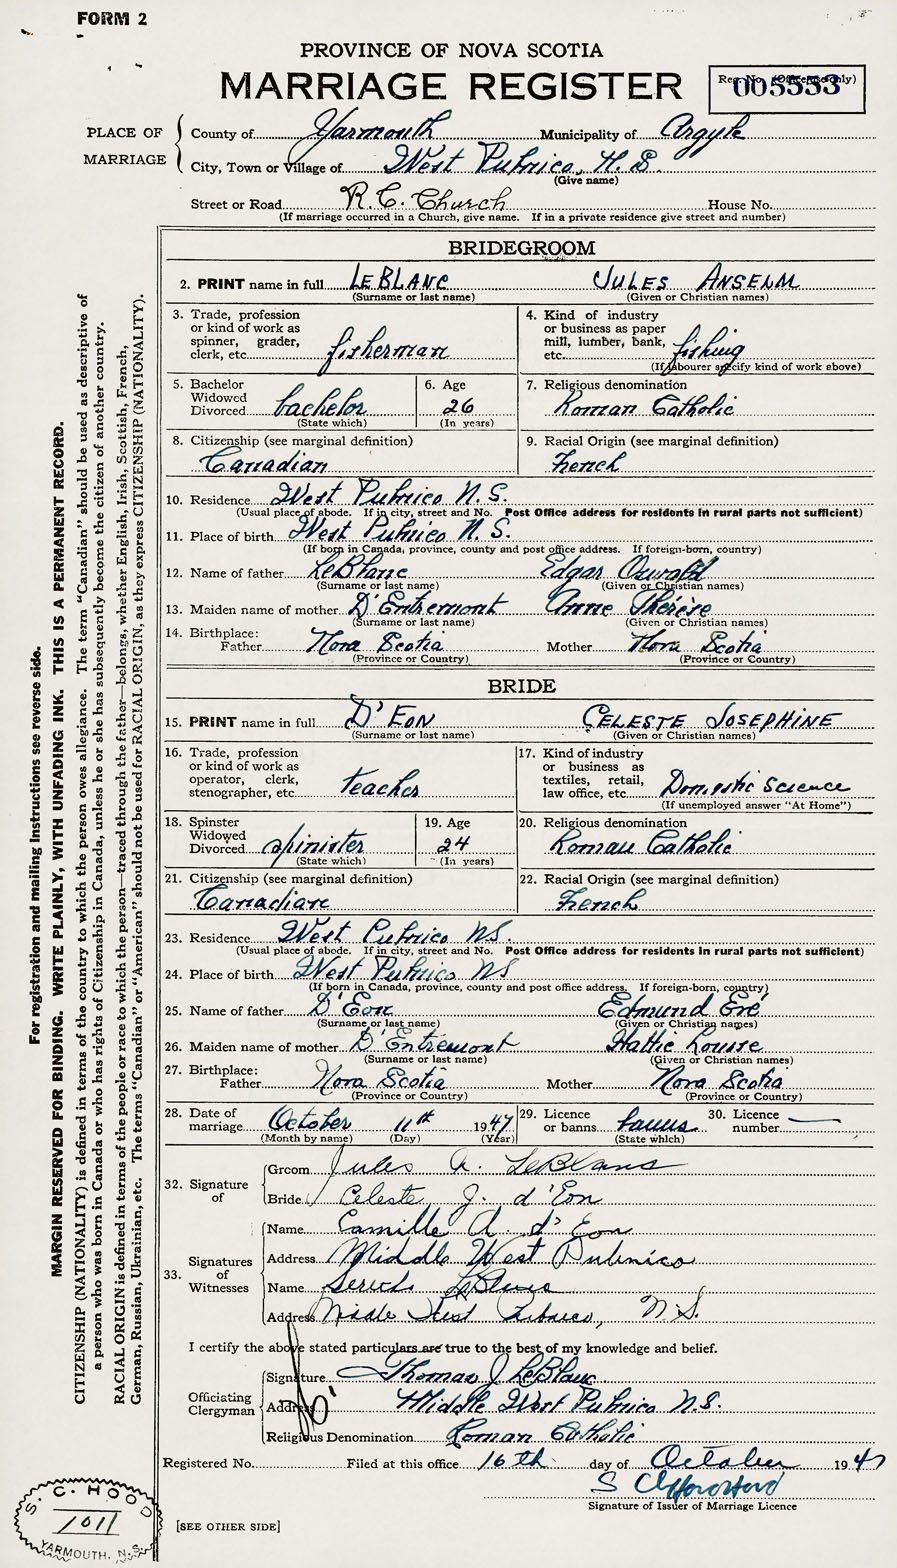 FORM 2
PROVINCE OF NOVA SCOTIA
MARRIAGE REGISTER
Reg. No. (Office use only)
005553
PLACE OF MARRIAGE
County of Yarmouth Municipality of Argyle
City, Town or Village of West Pubnico, N.S.
(Give name)
Street or Road R.C. Church House No.
(If marriage occurred in a Church, give name. If in a private residence give street and number)
BRIDEGROOM
2. PRINT name in full LEBLANC JULES ANSELM
(Surname or last name) (Given or Christian names)
3. Trade, profession or kind of work as spinner, grader, clerk, etc. fisherman
4. Kind of industry or business as paper mill, lumber, bank, etc. fishing
(If labourer specify kind of work above)
5. Bachelor Widowed Divorced bachelor
(State which)
6. Age 26
(In years)
7. Religious denomination
Roman Catholic
8. Citizenship (see marginal definition)
Canadian
9. Racial Origin (see marginal definition)
French
10. Residence West Pubnico N.S.
(Usual place of abode. If in city, street and No. Post Office address for residents in rural parts not sufficient)
11. Place of birth West Pubnico N.S.
(If born in Canada, province, county and post office address. If foreign-born, country)
12. Name of father LeBlanc Edgar Oswald
(Surname or last name) (Given or Christian names)
13. Maiden name of mother D'Entremont Anne Thérèse
(Surname or last name) (Given or Christian names)
14. Birthplace:
Father Nova Scotia Mother Nova Scotia
(Province or Country) (Province or Country)
BRIDE
15. PRINT name in full D'EON CELESTE JOSEPHINE
(Surname or last name) (Given or Christian names)
16. Trade, profession or kind of work as operator, clerk, stenographer, etc. teacher
17. Kind of industry or business as textiles, retail, law office, etc. Domestic Science
(If unemployed answer "At Home")
18. Spinster Widowed Divorced spinister
(State which)
19. Age 24
(In years)
20. Religious denomination
Roman Catholic
21. Citizenship (see marginal definition)
Canadian
22. Racial Origin (see marginal definition)
French
23. Residence West Pubnico N.S.
(Usual place of abode. If in city, street and No. Post Office address for residents in rural parts not sufficient)
24. Place of birth West Pubnico NS
(If born in Canada, province, county and post office address. If foreign-born, country)
25. Name of father D'Eon Edmund
(Surname or last name) (Given or Christian names)
26. Maiden name of mother D'Entremont Hattie Louise
(Surname or last name) (Given or Christian names)
27. Birthplace:
Father Nova Scotia Mother Nova Scotia
(Province or Country) (Province or Country)
28. Date of marriage October 11th 1947
(Month by name) (Day) (Year)
29. Licence or banns banns
(State which)
30. Licence number —
32. Signature of
Groom Jules A. LeBlanc
Bride Celeste J. d'Eon
33. Signatures of Witnesses
Name Camille A. d'Eon
Address Middle West Pubnico
Name LeBlanc
Address Middle West Pubnico, N.S.
I certify the above stated particulars are true to the best of my knowledge and belief.
Officiating Clergyman
Signature Thomas J LeBlanc
Address Middle West Pubnico N.S.
Religious Denomination Roman Catholic
Registered No. Filed at this office 16th day of October 1947
Signature of Issuer of Marriage Licence
[SEE OTHER SIDE]
S. C. HOOD
1011
YARMOUTH, N.S.
For registration and mailing instructions see reverse side.
MARGIN RESERVED FOR BINDING. WRITE PLAINLY, WITH UNFADING INK. THIS IS A PERMANENT RECORD.
CITIZENSHIP (NATIONALITY) is defined in terms of the country to which the person owes allegiance. The term "Canadian" should be used as descriptive of
a person who was born in Canada or who has rights of Citizenship in Canada, unless he or she has subsequently become the citizen of another country.
RACIAL ORIGIN is defined in terms of the people or race to which the person—traced through the father—belongs, whether English, Irish, Scottish, French,
German, Russian, Ukrainian, etc. The terms "Canadian" or "American" should not be used for RACIAL ORIGIN, as they express CITIZENSHIP (NATIONALITY).